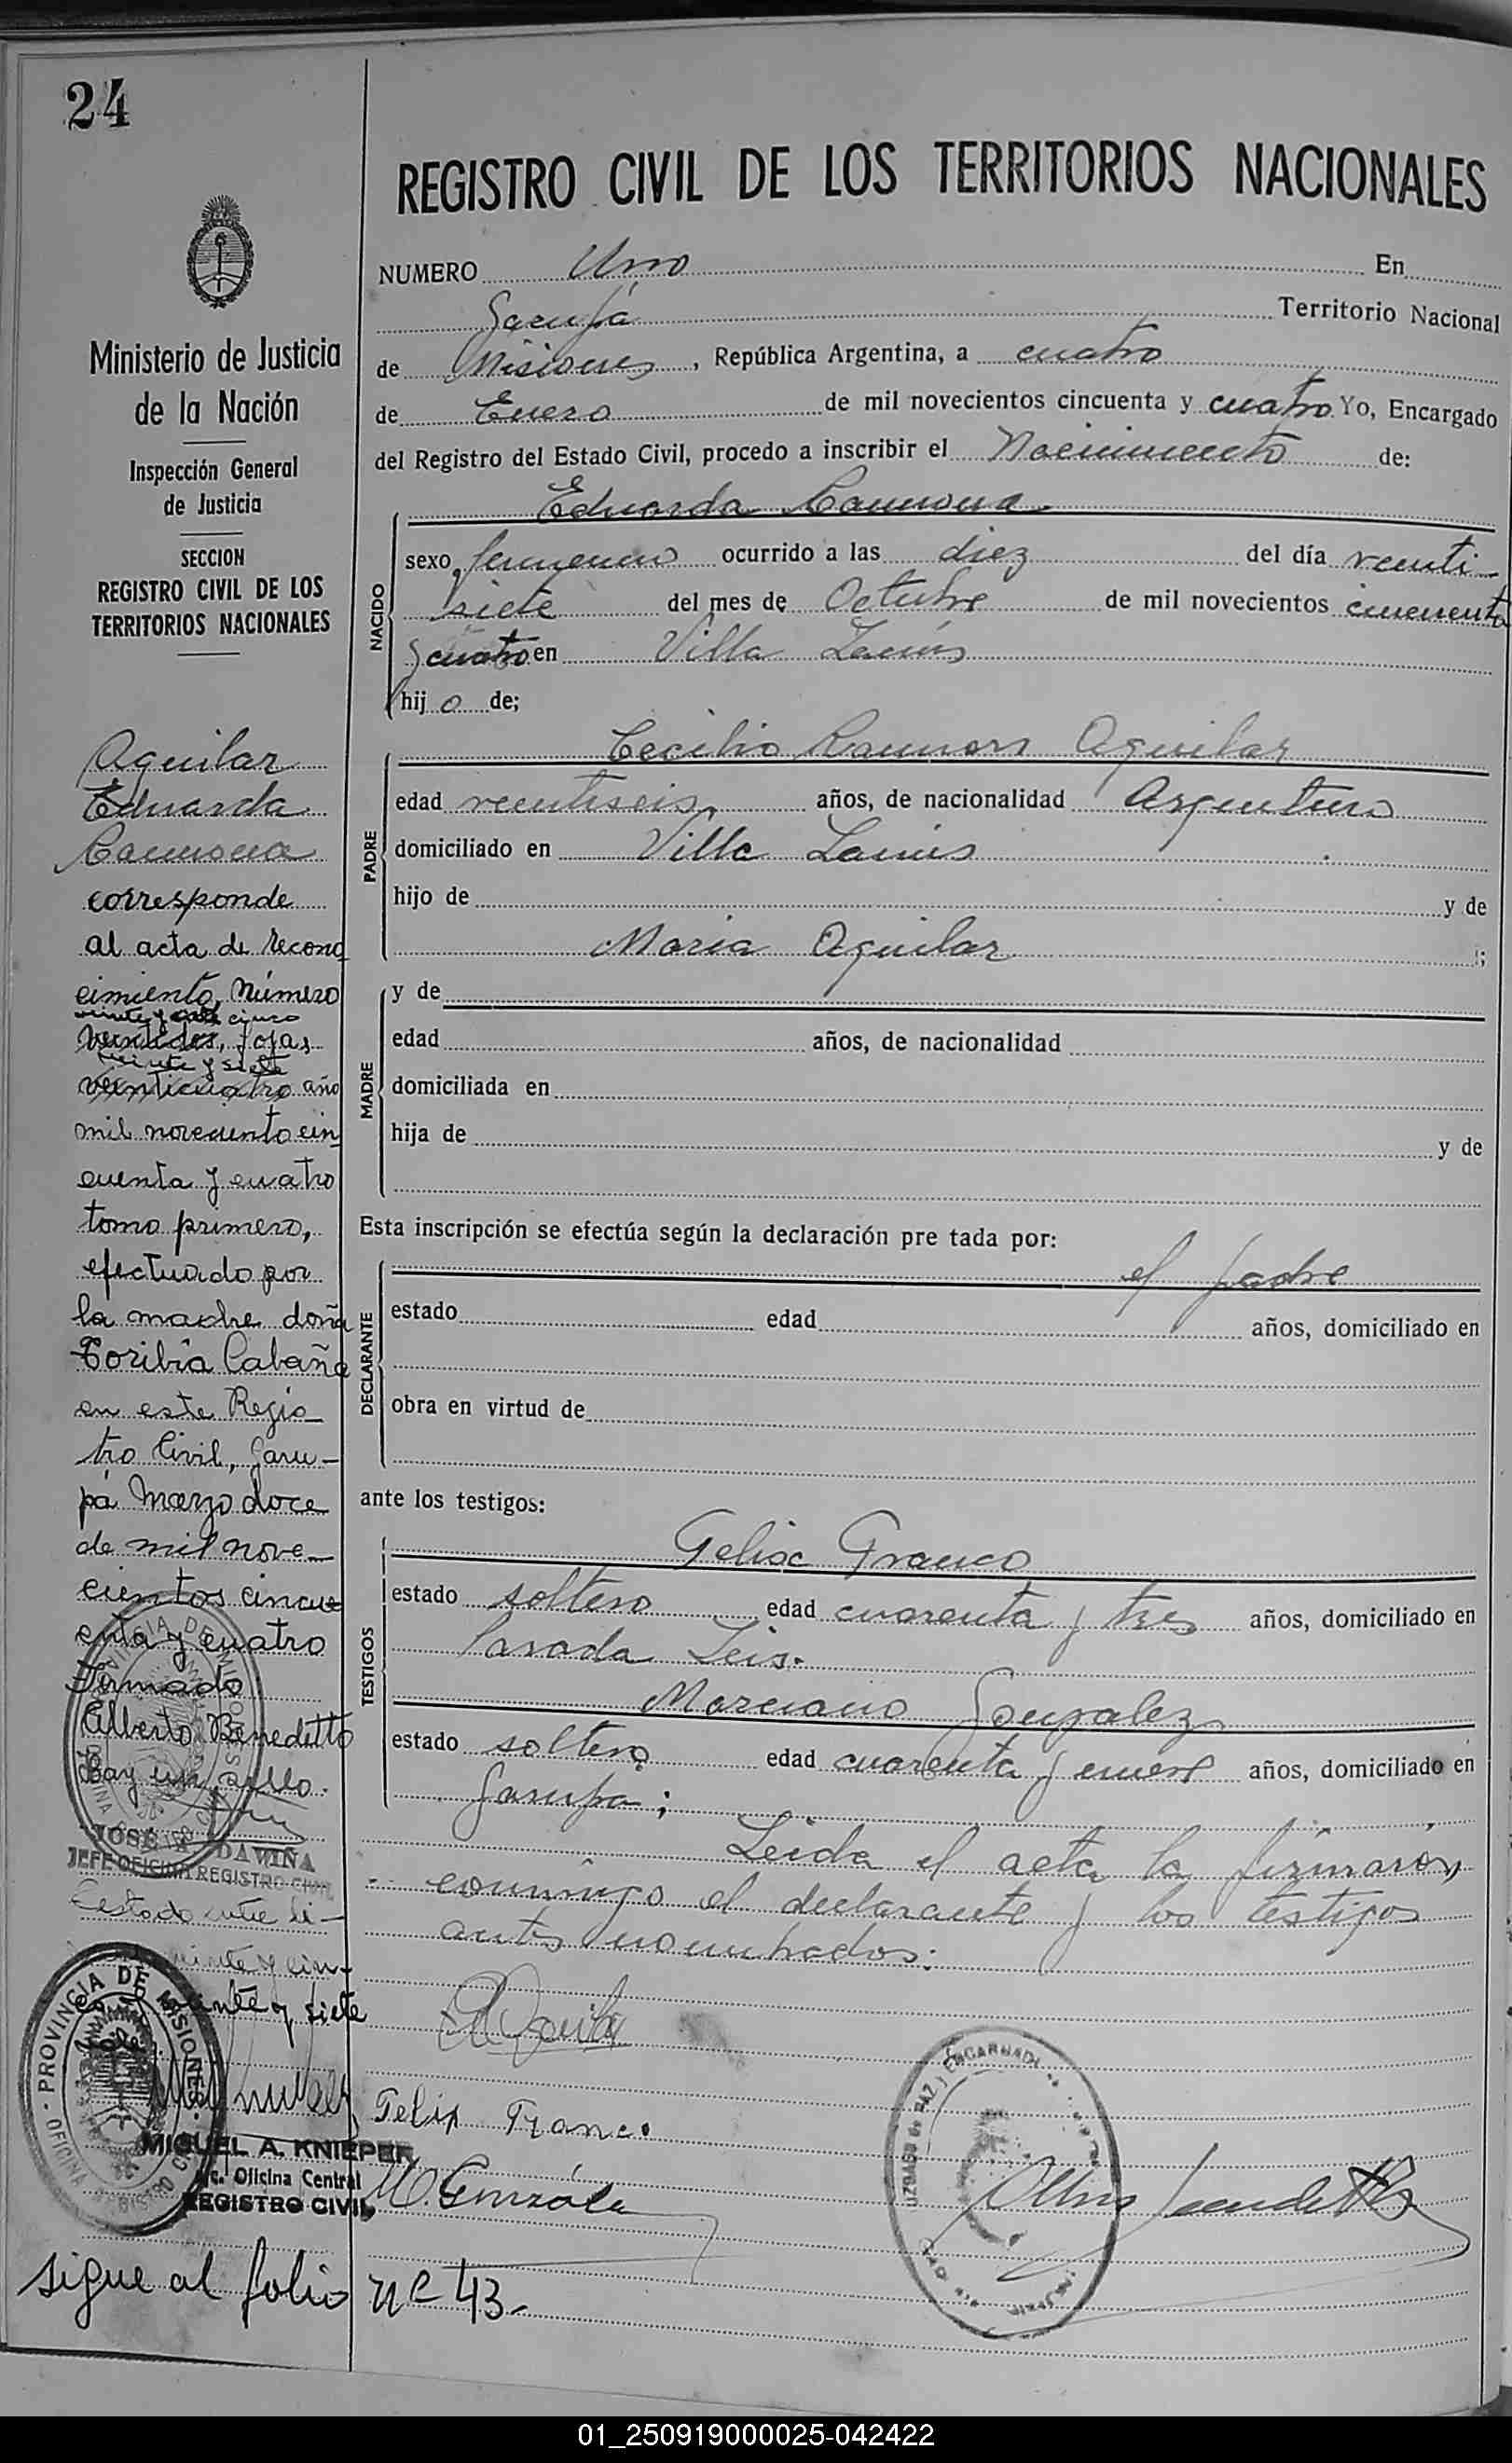 24
REGISTRO CIVIL DE LOS TERRITORIOS NACIONALES
NUMERO Uno En
Garupá Territorio Nacional
de Misiones, República Argentina, a cuatro
de Enero de mil novecientos cincuenta y cuatro Yo, Encargado
del Registro del Estado Civil, procedo a inscribir el Nacimiento de:
Eduarda Ramona
NACIDO
sexo femenino ocurrido a las diez del día veinti-
siete del mes de Octubre de mil novecientos cincuenta
y cuatro en Villa Lanús
hij o de;
PADRE
Cecilio Ramon Aguilar
edad veintiseis, años, de nacionalidad Argentino
domiciliado en Villa Lanús
hijo de y de
Maria Aguilar ;
MADRE
y de
edad años, de nacionalidad
domiciliada en
hija de y de
Esta inscripción se efectúa según la declaración pre tada por:
DECLARANTE
el padre
estado edad años, domiciliado en
obra en virtud de
ante los testigos:
TESTIGOS
Felix Franco
estado soltero edad cuarenta y tres años, domiciliado en
Parada Leis.
Marciano Gonzalez
estado soltero edad cuarenta y años, domiciliado en
Garupa;
Leida el acta la firmaron,
conmigo el declarante y los testigos
antes nombrados:
Felix Franco
M. Gonzále
Ministerio de Justicia
de la Nación
Inspección General
de Justicia
SECCION
REGISTRO CIVIL DE LOS
TERRITORIOS NACIONALES
Aguilar
Eduarda
Ramona
corresponde
al acta de recono
cimiento, número
veinte y cinco
fojas
veinte y siete
venticuatro año
mil noveciento cin
cuenta y cuatro
tomo primero,
efectuado por
la madre doña
Toribia Cabaña
en este Regis
tro Civil, Garu-
pá Marzo doce
de mil nove-
cientos cincue
enta y cuatro
Firmado
Alberto Benedetto
Hay un sello.
JOSÉ DAVIÑA
JEFE OFICINA REGISTRO CIVIL
Testado entre li-
veinte y cin-
veinte y siete
vale
PROVINCIA DE MISIONES
OFICINA REGISTRO CIVIL
MIGUEL A. KNIEPER
c. Oficina Central
REGISTRO CIVIL
sigue al folio nº 43.-
01_250919000025-042422